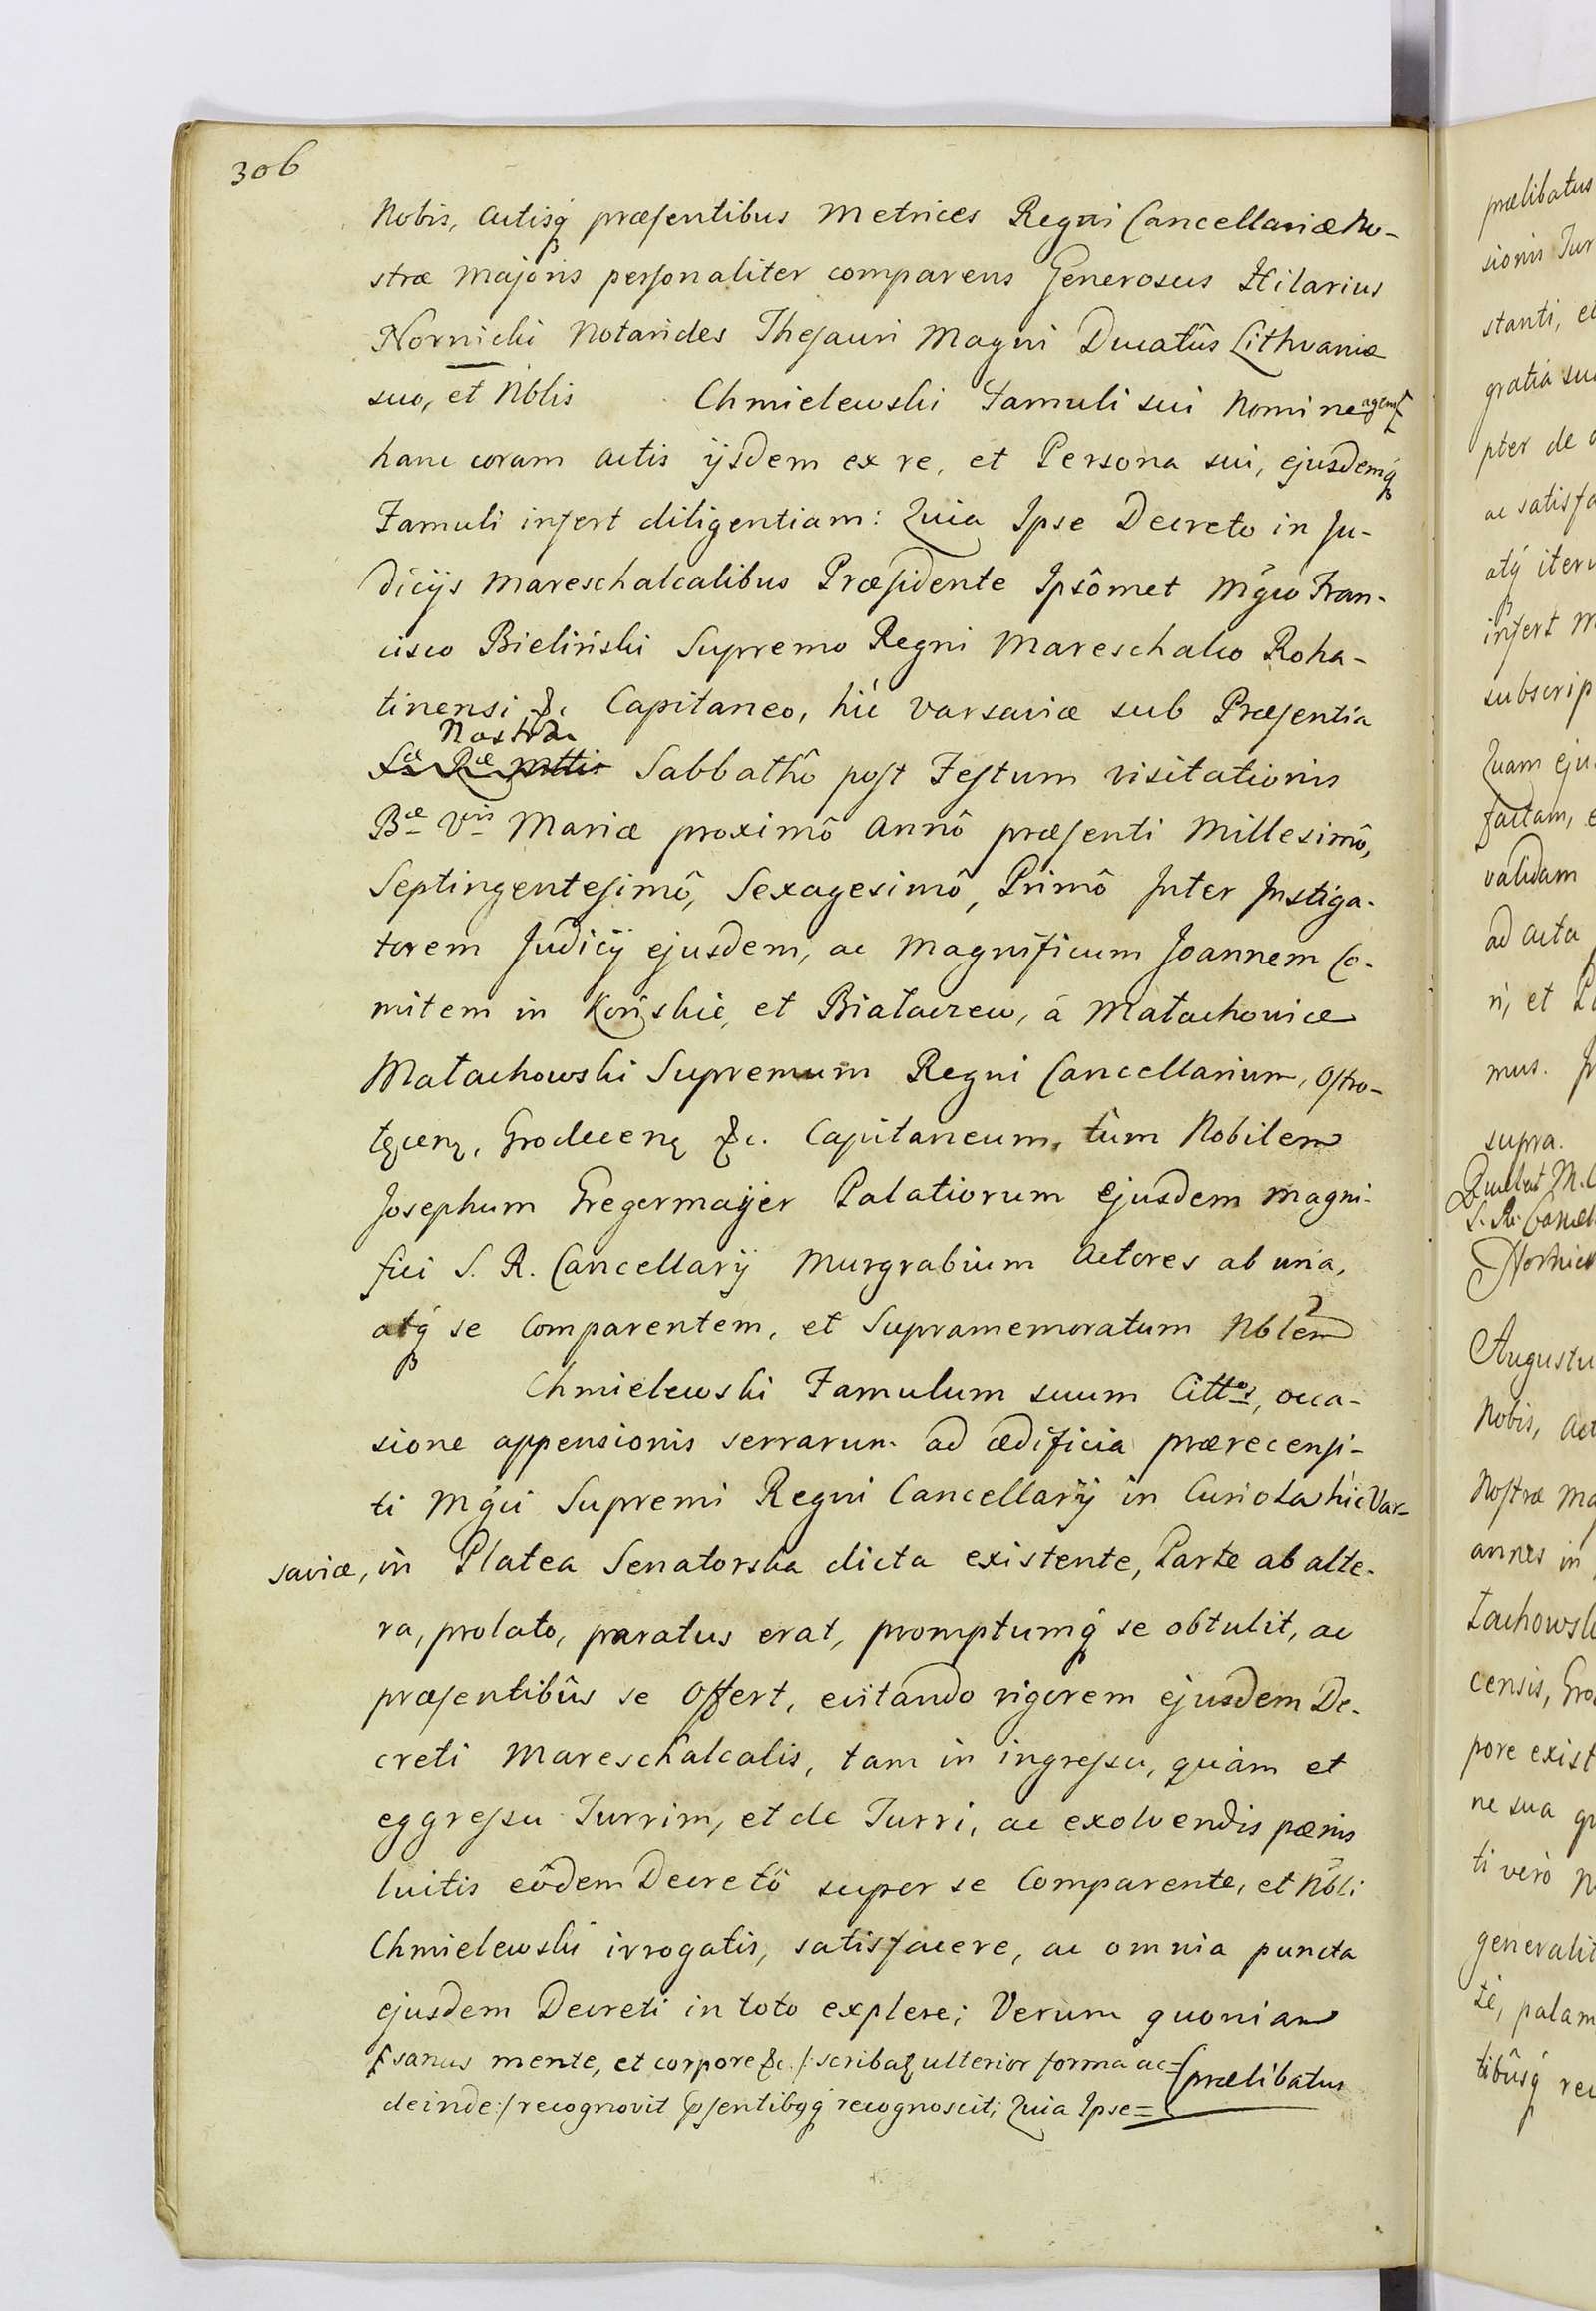 306
Nobis, Actisq́ præsentibus Metrices Regni Cancellariæ No-
stræ Majoris personaliter comparens Generosus Hilarius
Nornicki Notarides Thesauri Magni Ducatûs Lithvaniæ
suo, et Nblis Chmielewski Famuli sui Nomine agens
hanc coram Actis ijsdem ex re, et Persona sui, ejusdemq́
Famuli infert diligentiam: Quia Ipse Decreto in Ju-
dicijs Mareschalcalibus Præsidente Ipsômet Mgco Fran-
cisco Bieliński Supremo Regni Mareschalco Roha-
tinensi &c Capitaneo, hìc Varsaviæ sub Præsentia
Nostra
Sæ Ræ Mttis Sabbathô post Festum Visitationis
Bæ Vnis Mariæ proximô Annô præsenti Millesimô,
Septingentesimô, Sexagesimô, Primô Inter Instiga-
torem Judicij ejusdem, ac Magnificum Joannem Co-
mitem in Końskie, et Białaczew, à Małachowice
Małachowski Supremum Regni Cancellarium, Ostro-
łęcen, Grodecen &c. Capitaneum, tùm Nobilem
Josephum Gregermaÿer Palatiorum Ejusdem Magni-
fici S. R. Cancellarij Murgrabium Actores ab una,
atq́ se Comparentem, et Supramemoratum Nblem
Chmielewski Famulum suum Cittos, occa-
sione appensionis serrarum ad ædificia prærecensi-
ti Mgci Supremi Regni Cancellarij in Curiola hìc Var-
saviæ, in Platea Senatorska dicta existente, Parte ab alte-
ra, prolato, paratus erat, promptumq́ se obtulit, ac
præsentibûs se Offert, evitando rigorem ejusdem De-
creti Mareschalcalis, tam in ingressu, quàm et
eggressu Turrim, et de Turri, ac exolvendis pænis
luitis eôdem Decretô super se Comparente, et Nbli
Chmielewski irrogatis, satisfacere, ac omnia puncta
ejusdem Decreti in toto explere; Verum quoniam
sanus mente, et corpore &c. /: scribat ulterior forma ac=
deinde :/ recognovit psentibqq́ recognoscit; Quia Ipse=
prælibatus
prælibatus
sionis Jur
stanti,
gratia su
pter de
ac satisfa
atq́ iter
infert
subscrip
Quam eju
factam,
validam
ad Acta
ri, et
mus.
supra.
Augustu
Nobis, Act
Nostræ Ma
annes in
łachowsk
censis, Gro
pore exist
ne sua
ti verò
generalit
tè, palam
tibûsq́ rec